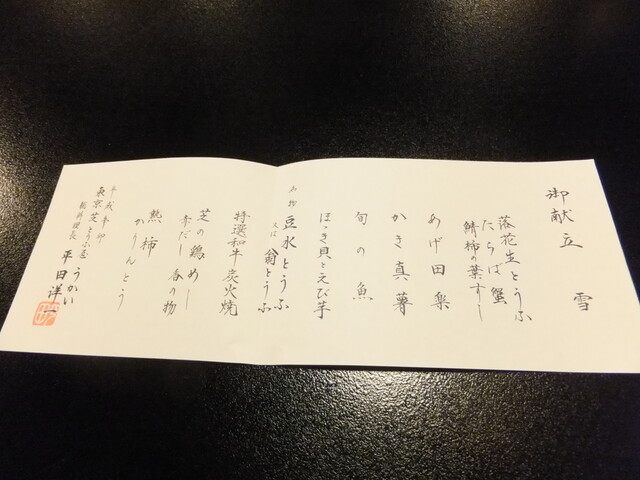 御献立
雪
落花生とうふ
たらば蟹
鯖柿の葉すし
あげ田楽
かき真薯
旬の魚
ほっき貝とえび芋
名物 豆水とうふ
又は 翁とうふ
特選和牛炭火焼
芝の鶏めし
赤だし 香の物
熟柿
かりんとう
平成辛卯
東京芝とうふ屋うかい
料理長 平田洋一